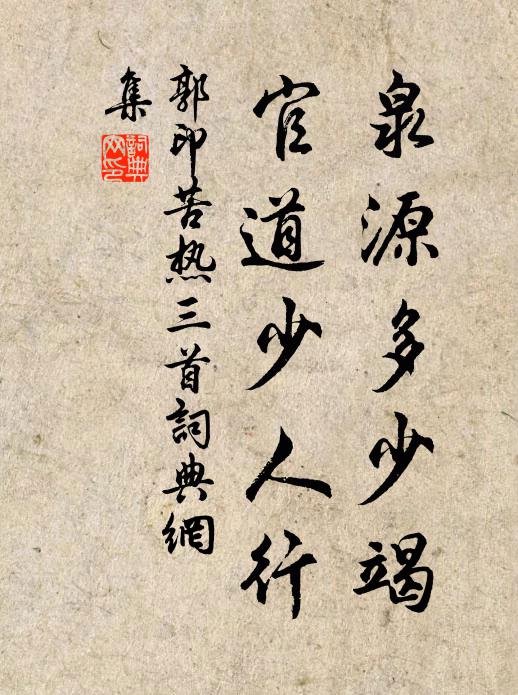 泉源多少竭
官道少人行
郭印苦热三首詞典網
集
詞典
网印